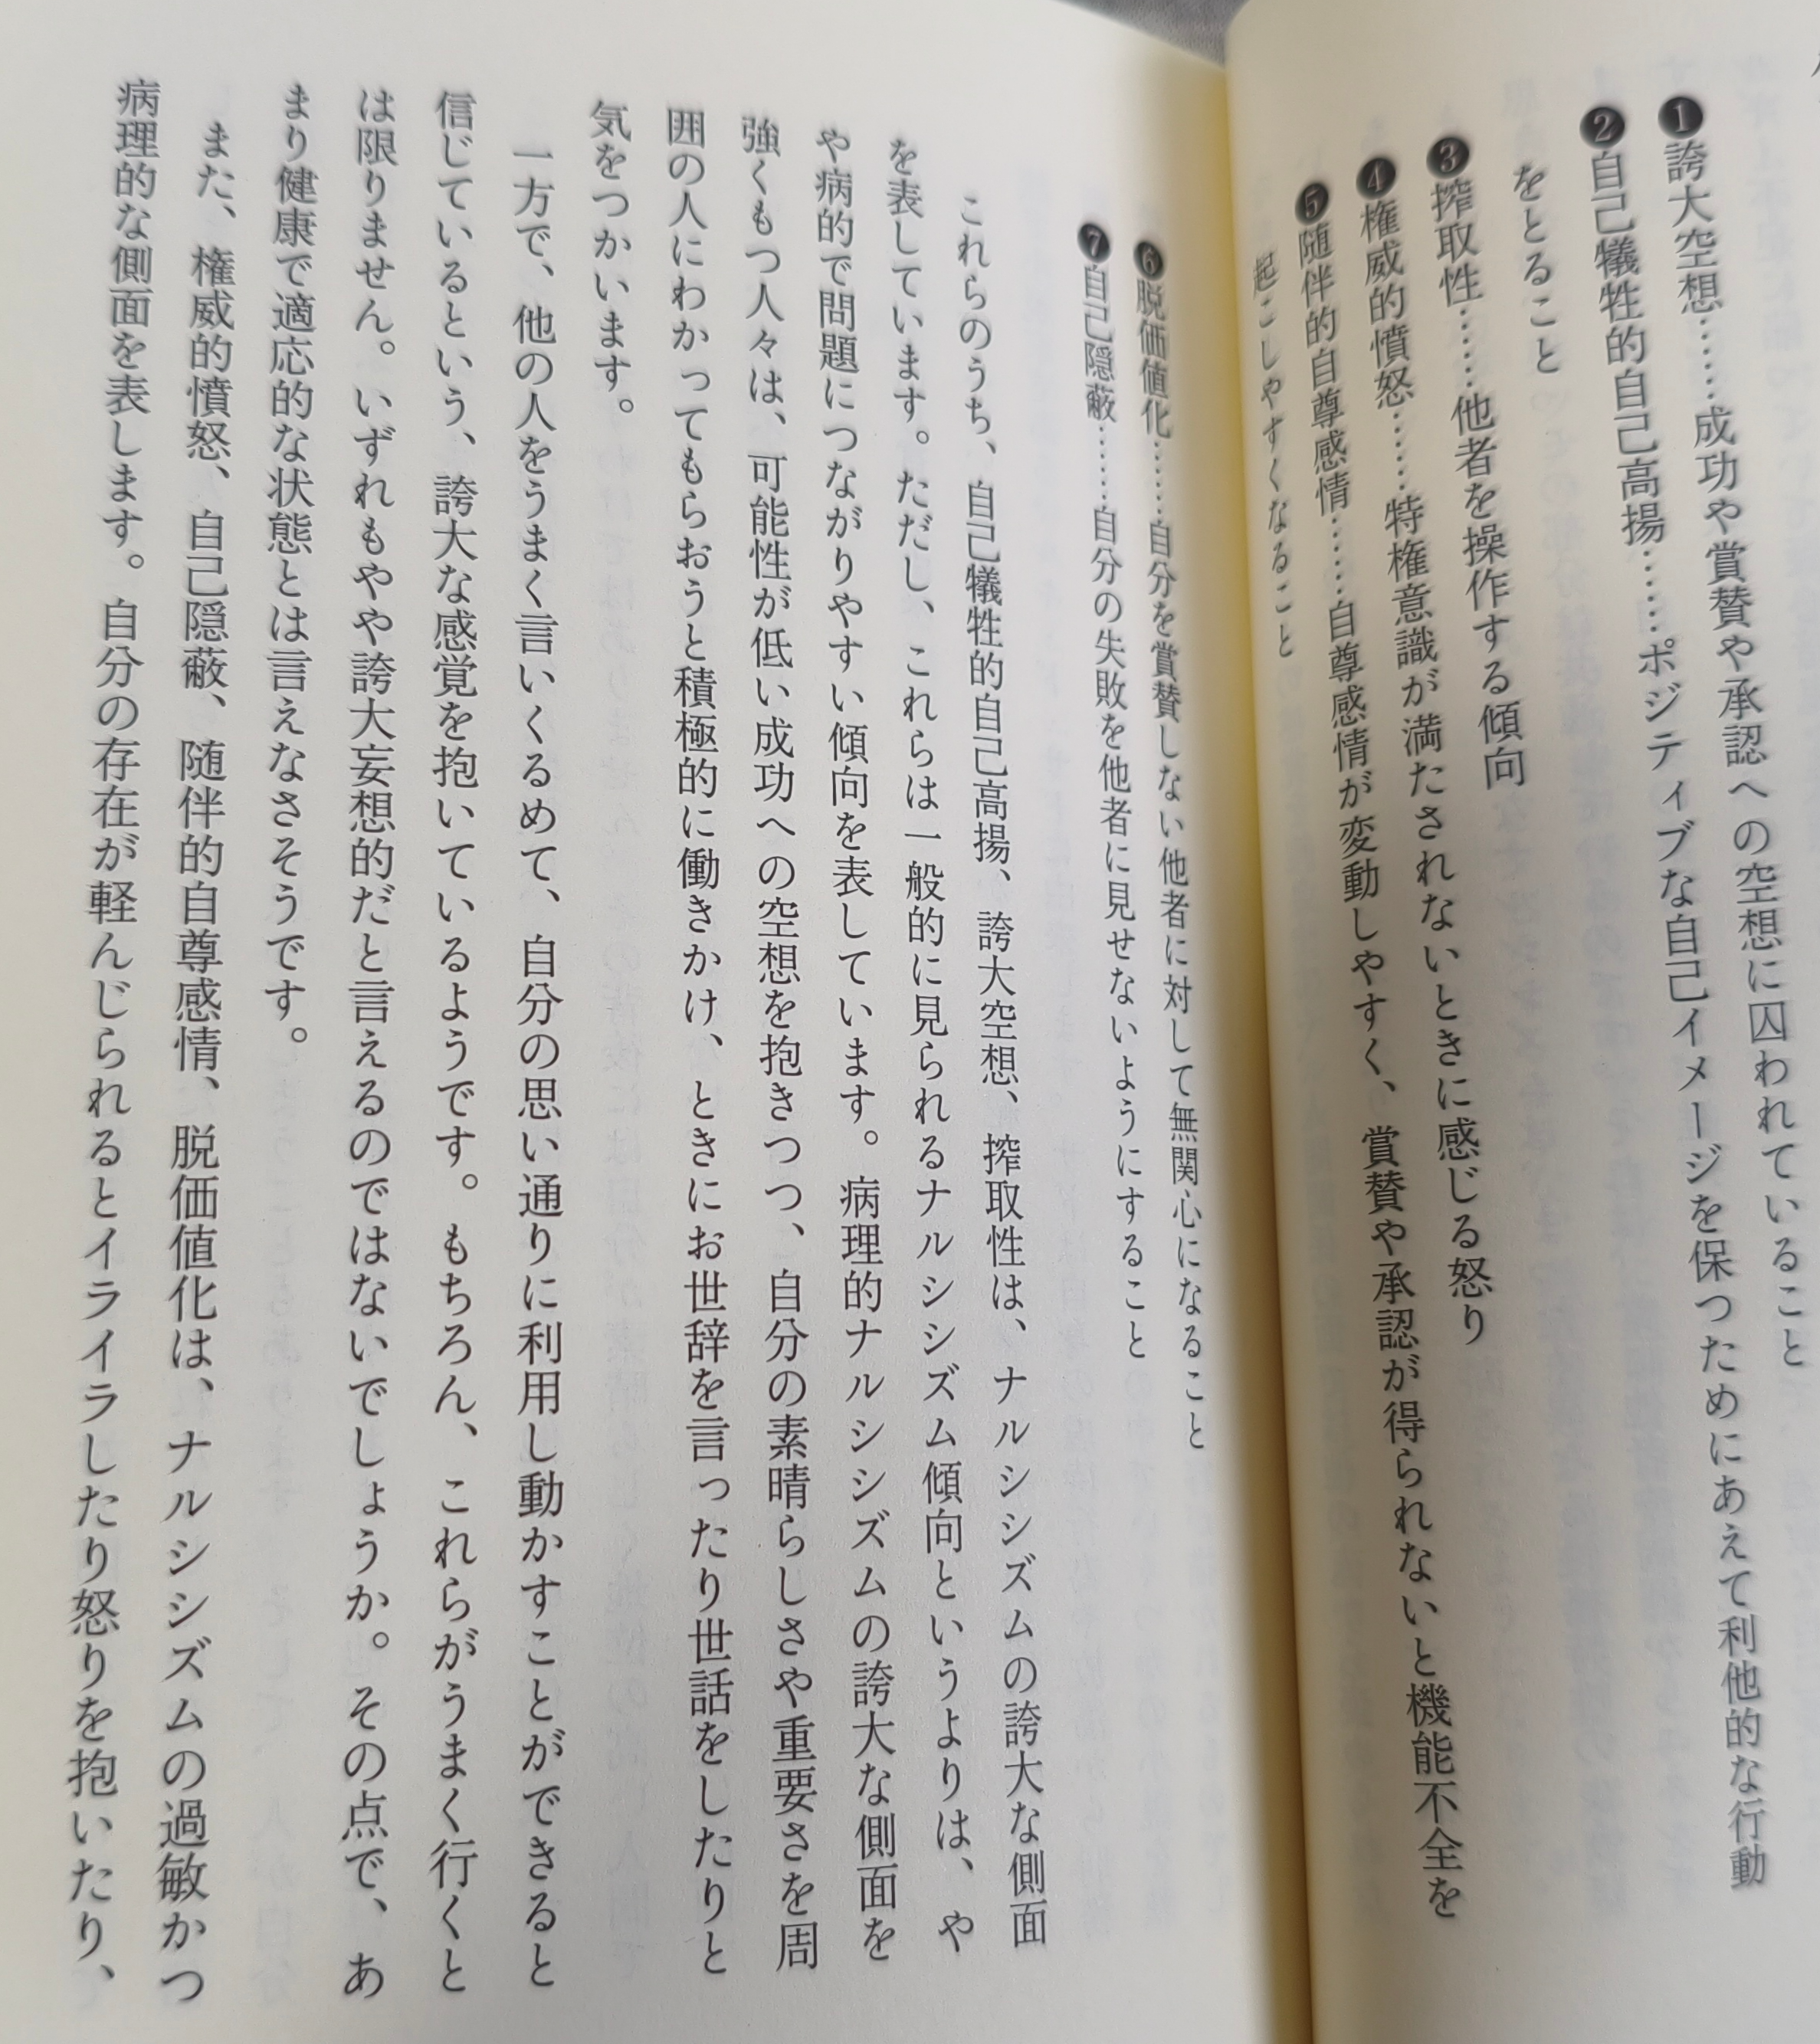 ❶誇大空想……成功や賞賛や承認への空想に囚われていること
❷自己犠牲的自己高揚……ポジティブな自己イメージを保つためにあえて利他的な行動
をとること
❸搾取性……他者を操作する傾向
❹権威的憤怒……特権意識が満たされないときに感じる怒り
❺随伴的自尊感情……自尊感情が変動しやすく、賞賛や承認が得られないと機能不全を
起こしやすくなること
❻脱価値化……自分を賞賛しない他者に対して無関心になること
❼自己隠蔽……自分の失敗を他者に見せないようにすること
これらのうち、自己犠牲的自己高揚、誇大空想、搾取性は、ナルシシズムの誇大な側面
を表しています。ただし、これらは一般的に見られるナルシシズム傾向というよりは、や
や病的で問題につながりやすい傾向を表しています。病理的ナルシシズムの誇大な側面を
強くもつ人々は、可能性が低い成功への空想を抱きつつ、自分の素晴らしさや重要さを周
囲の人にわかってもらおうと積極的に働きかけ、ときにお世辞を言ったり世話をしたりと
気をつかいます。
一方で、他の人をうまく言いくるめて、自分の思い通りに利用し動かすことができると
信じているという、誇大な感覚を抱いているようです。もちろん、これらがうまく行くと
は限りません。いずれもやや誇大妄想的だと言えるのではないでしょうか。その点で、あ
まり健康で適応的な状態とは言えなさそうです。
また、権威的憤怒、自己隠蔽、随伴的自尊感情、脱価値化は、ナルシシズムの過敏かつ
病理的な側面を表します。自分の存在が軽んじられるとイライラしたり怒りを抱いたり、